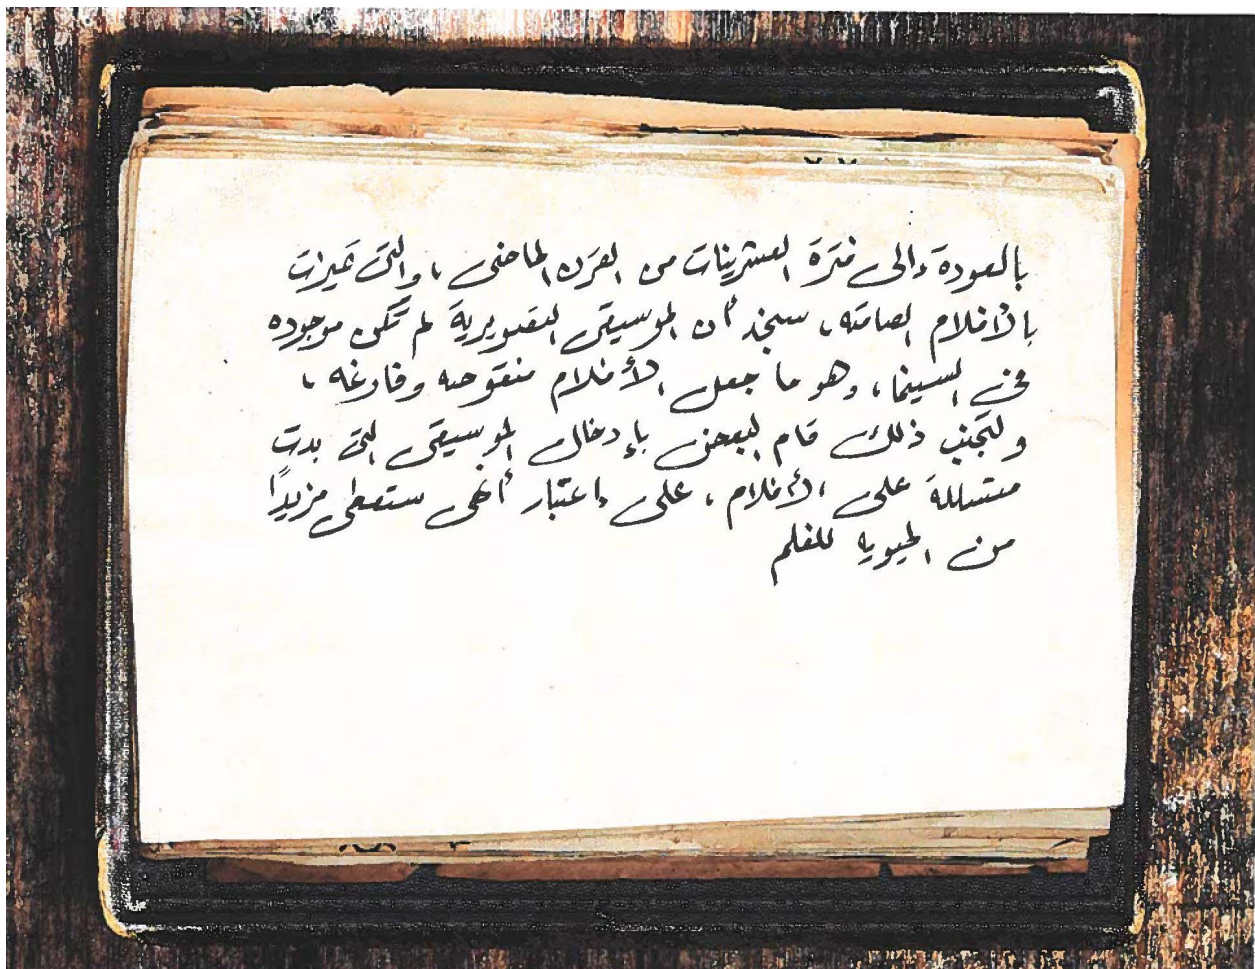 بالعودة إلى فترة العشرينات من القرن الماضي، والتي تميزت
بالأفلام الصامته، سنجد أن الموسيقى التصويرية لم تكن موجوده
في السينما، وهو ما جعل الأفلام منقوصه وفارغه،
ولتجنب ذلك قام البعض بإدخال الموسيقى التي بدت
متسللة على الأفلام، على اعتبار أنها ستعطي مزيدًا
من الحيويه للفلم